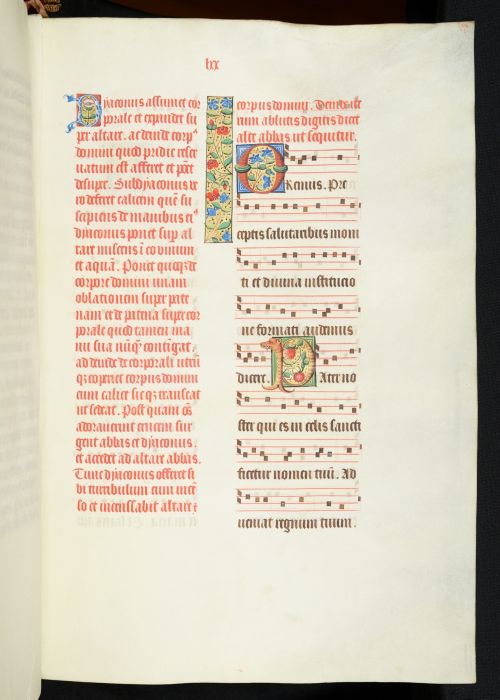 lxx
Dyaconus assumet cor
porale et expandet su
per altare. ac deinde corp9
domini quod pridie reser
uatum est afferet et ponet
desuper. Subdyaconus ve
ro deferet calicem quē su
scipiens de manibus ei9
dyaconus ponet sup al
tare miscens ī eo vinum
et aquā. Ponet quoqꝫ de
corpore domini unam
oblationem super pate
nam et de patena super cor
porale quod tamen ma
nu sua nūqꝫ contīgat
ad deinde de corporali
qꝫ coperiet corpus domini
cum calice sicqꝫ transeat
ut sedeat. Post quam oēs
adorauerint crucem sur
gent abbas et dyaconus.
et accedet ad altare abbas.
Tunc dyaconus offeret si
bi turibulum cum ince
so et incensabit altare
corpus domini. Deinde
rum ablutis digitis dicet
alte abbas ut sequitur.
Oremus. Pre
ceptis salutaribus moni
ti et diuina institucio
ne formati audemus
dicere. Pater no
ster qui es in celis sancti
ficetur nomen tuū. Ad
ueniat regnum tuum.